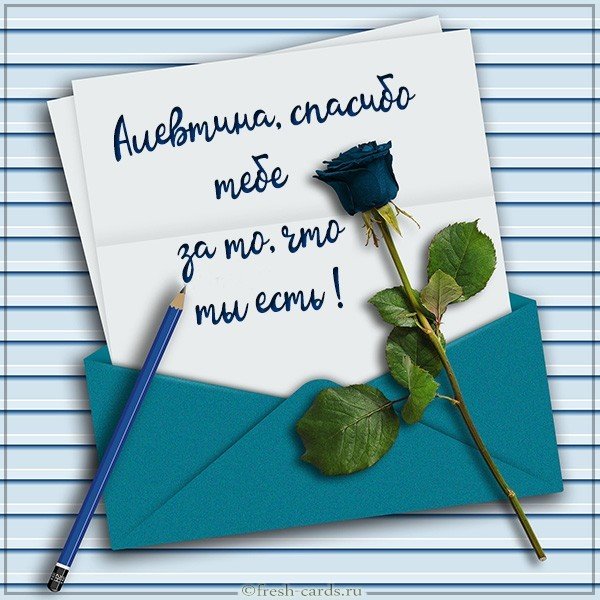 Алевтина, спасибо
тебе
за то, что
ты есть !
©fresh-cards.ru